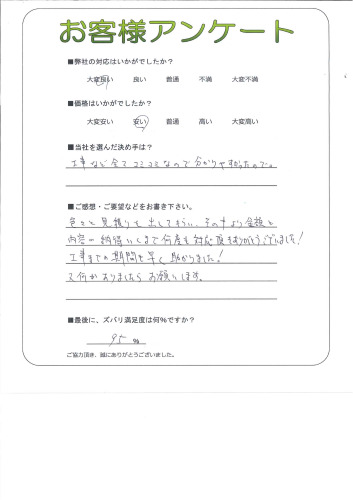 お客様アンケート
■弊社の対応はいかがでしたか?
大変良い 良い 普通 不満 大変不満
■価格はいかがでしたか?
大変安い 安い 普通 高い 大変高い
■当社を選んだ決め手は?
工事など全てコミコミなので分かりやすかったので。
■ご感想・ご要望などをお書き下さい。
色々と見積りを出してもらい、その中より金額と
内容の納得いくまで何度も対応頂きありがとうございました!
工事までの期間も早く助かりました!
又何かありましたらお願いします。
■最後に、ズバリ満足度は何%ですか?
95 %
ご協力頂き、誠にありがとうございました。